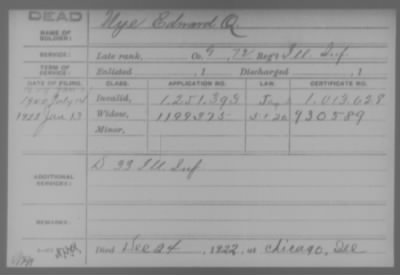 DEAD
NAME OF SOLDIER:
Nye Edward Q.
SERVICE:
Late rank, Co. G 72 Reg't Ill. Inf
TERM OF SERVICE:
Enlisted , 1 Discharged , 1
DATE OF FILING. CLASS. APPLICATION NO. LAW. CERTIFICATE NO.
1900 July Invalid, 1,251,393 1,013,028
1923 Jan 13 Widow, 1199375 930589
Minor,
ADDITIONAL SERVICES:
D 33 Ill. Inf
REMARKS:
Died Dec 24, 1922, at Chicago, Ill